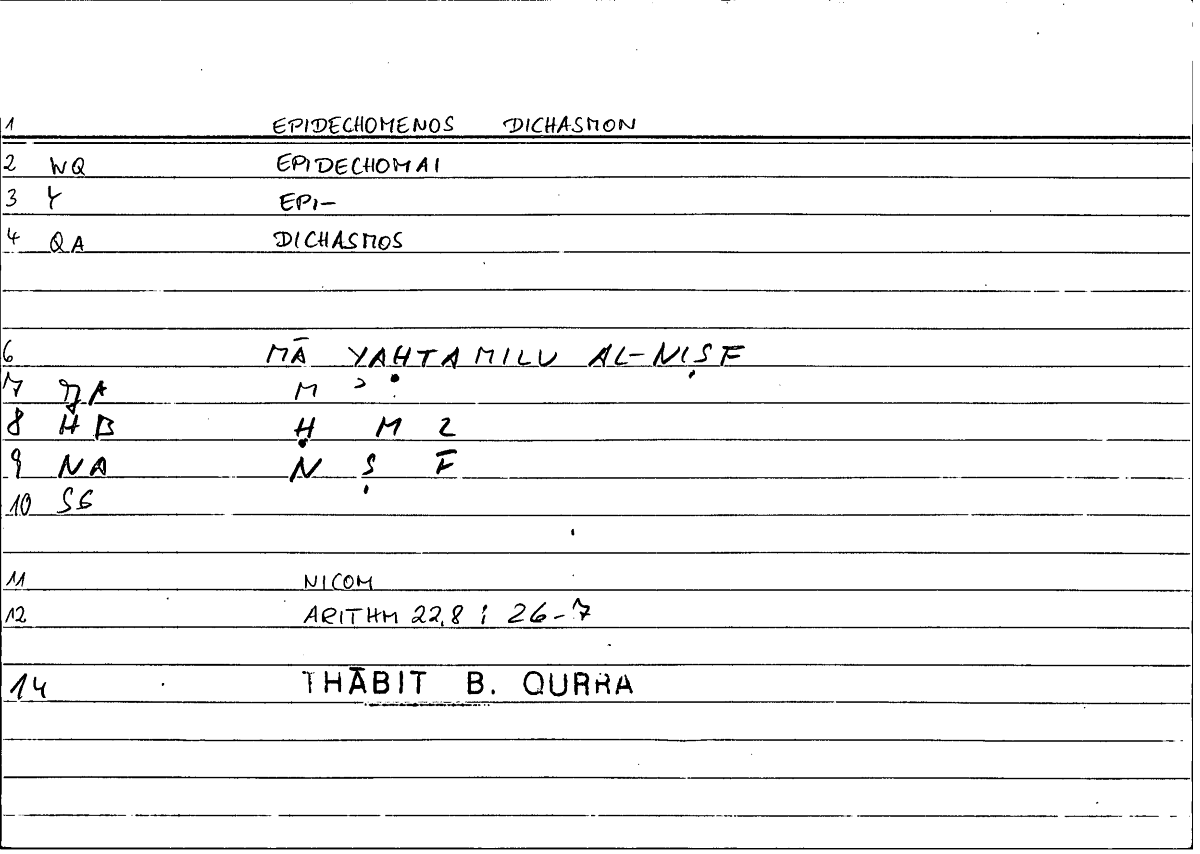 1 EPIDECHOMENOS DICHASMON
2 WQ EPIDECHOMAI
3 Y EPI-
4 QA DICHASMOS
6 MĀ YAḤTAMILU AL-NIṢF
7 M ʾ
8 HB Ḥ M L
9 NA N Ṣ F
10 SG
11 NICOM
12 ARITHM 22,8 ; 26-7
14 THĀBIT B. QURRA